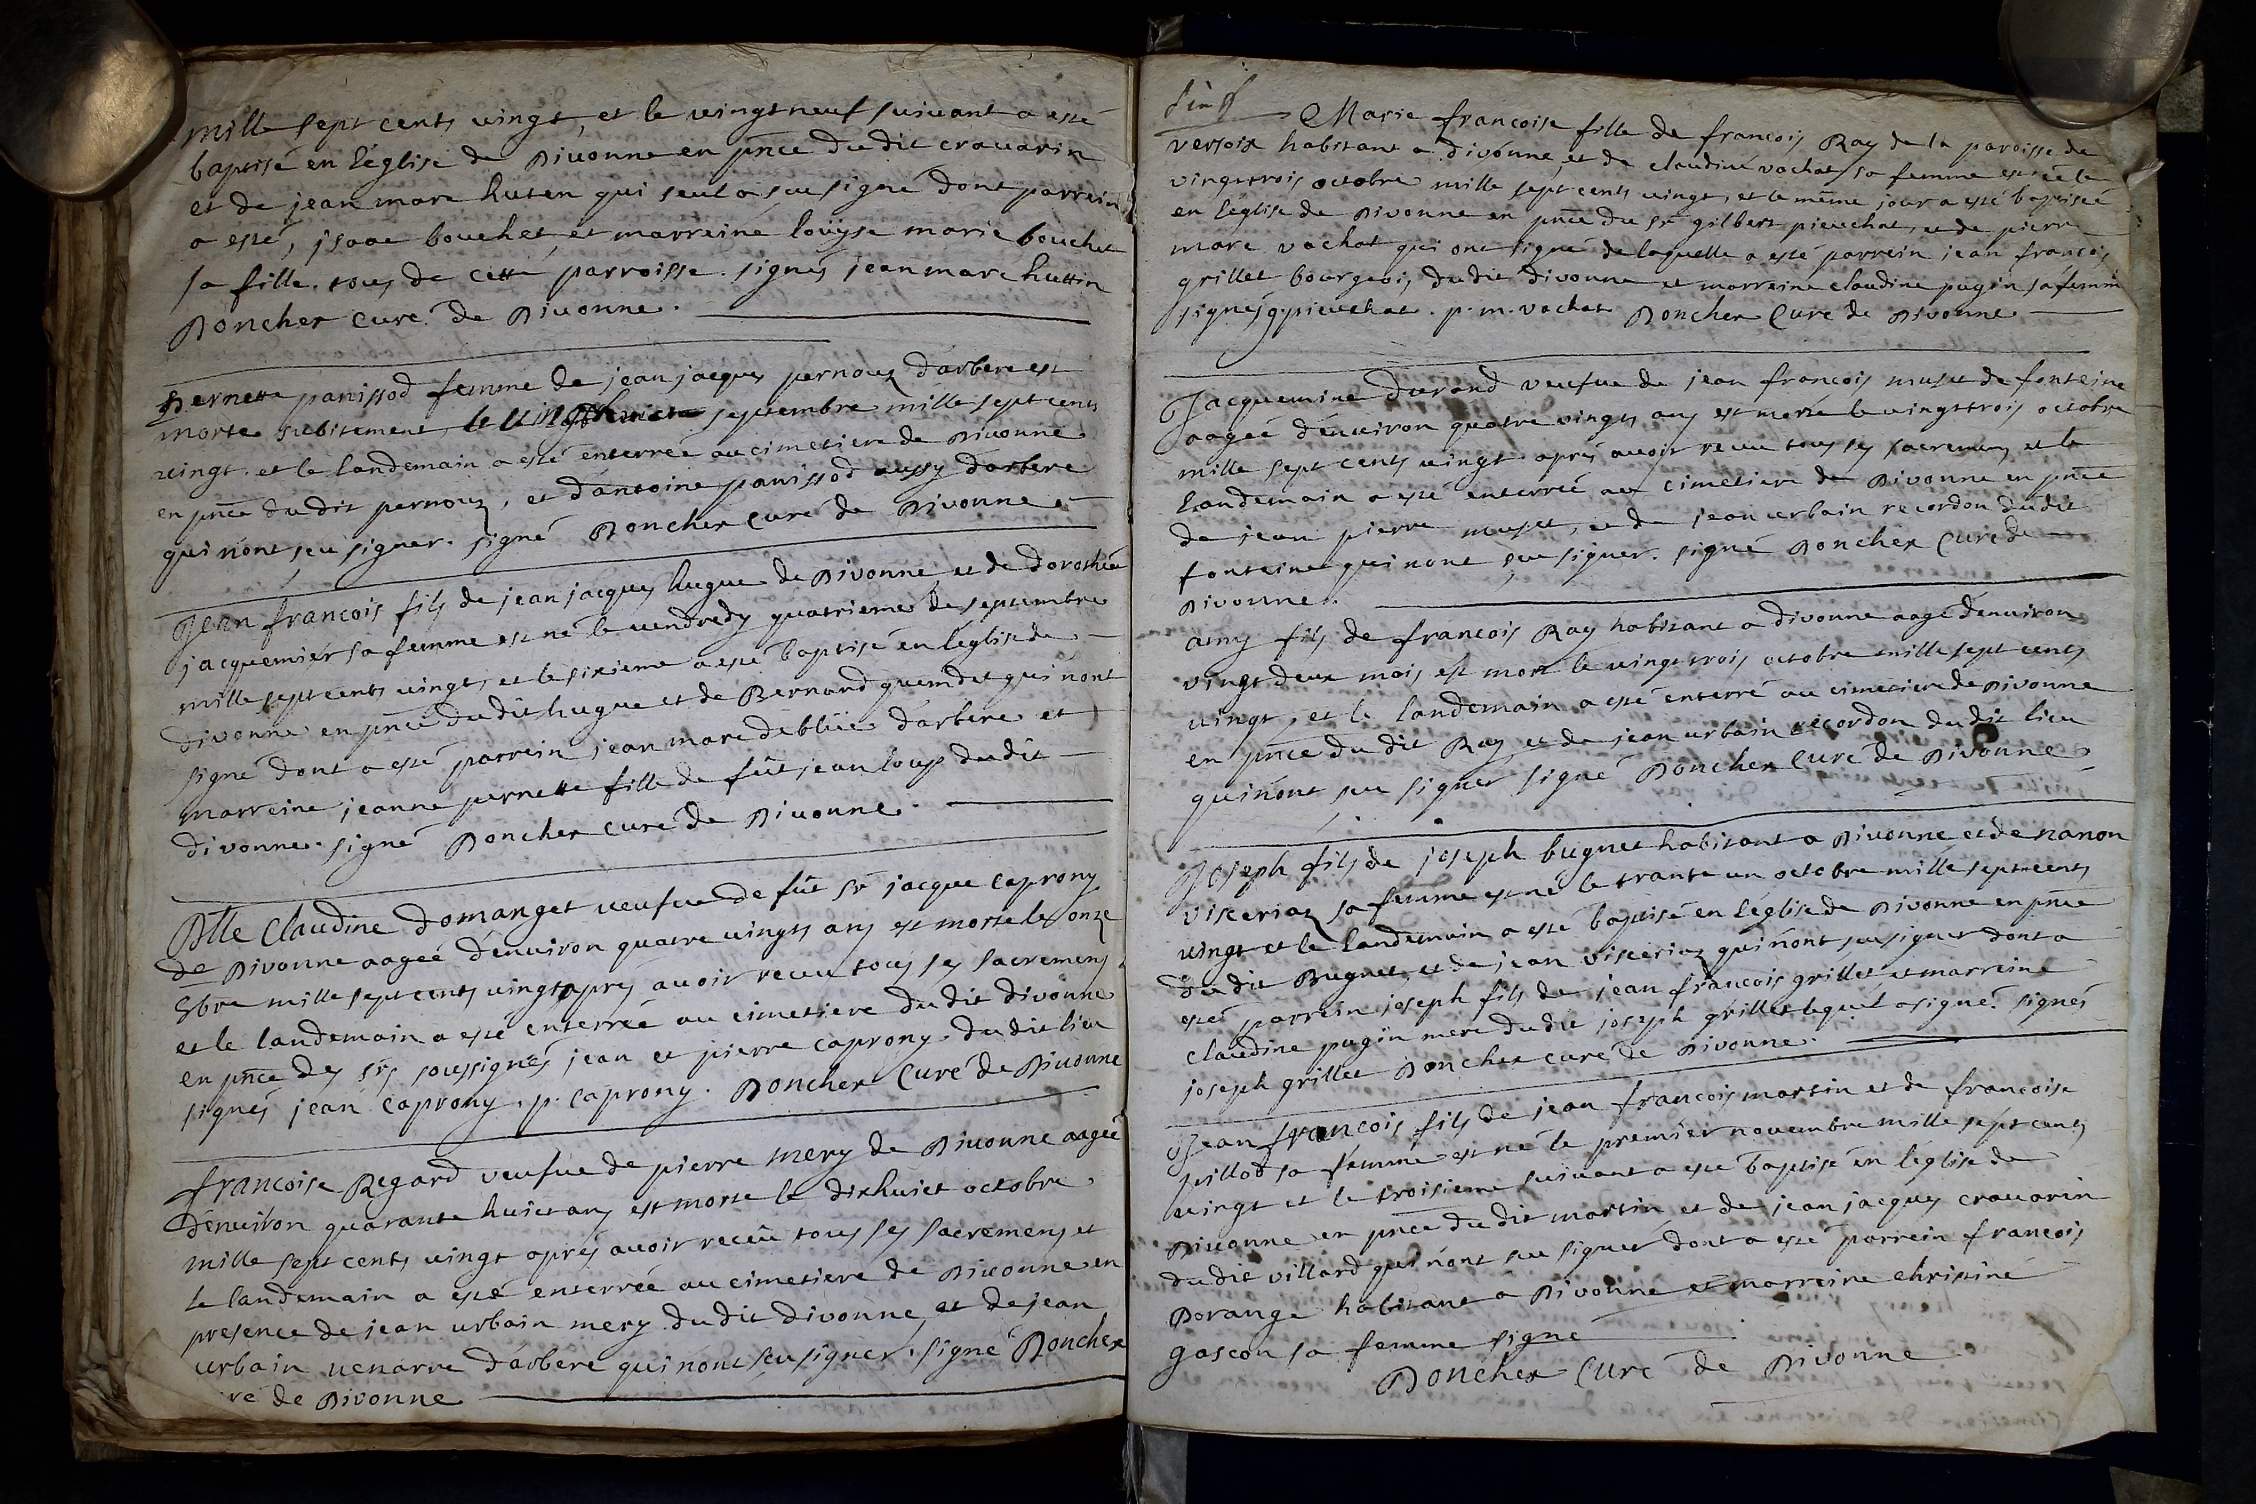 mille sept cents vingt, et le vingt neuf suivant a esté
baptisé en l'église de Divonne en pnce dudit crauarin
et de jean marc huten qui seul a sçu signé dont parrein
a esté, jsaac bouchet et marreine loüyse marie bouchet
sa fille. tous de cette parroisse. signés jean marc huttin
Doncher curé de Divonne.
Pernette panissod femme de jean jacques pernouz d'arbere est
morte subitement le vingthuict septembre mille sept cents
vingt. et le landemain a esté enterrée au cimetiere de Divonne
en pnce dudit pernouz, et d'antoine panissod aussy darbere
qui n'ont sçu signer. signé Doncher curé de Divonne
Jean francois fils de jean jacques hugue de Divonne et de dorothée
jacquemier sa femme est né le vendredy quatrieme de septembre
mille sept cents vingt, et le sixieme a esté baptisé en l'église de
divonne en pnce dudit hugue et de Bernard guendet qui n'ont
signé dont a esté parrein jean marc deblüe d'arbere et
marreine jeanne pernette fille de fût jean loup dudit
divonne. signé Doncher curé de Divonne.
Dlle Claudine Domanget veufue de fût sr jacque Caprony
de Divonne aagée d'environ quatre vingts ans est morte le onze
8bre mille sept cents vingt après avoir receu tous ses sacremens
et le landemain a esté enterrée au cimetiere dudit divonne
en pnce des srs soussignés jean et pierre caprony. dudit lieu
signés jean caprony. p. caprony. Doncher Curé de Divonne
francoise Regard veufue de pierre mery de Divonne aagée
d'environ quarante huict ans est morte le dixhuict octobre
mille sept cents vingt après avoir receu tous ses sacremens et
le landemain a esté enterrée au cimetiere de Divonne en
presence de jean urbain mery dudit divonne et de jean
urbain venarre d'arbere qui n'ont sçu signer. signé Doncher
ré de Divonne
Marie francoise fille de francois Ray de la paroisse de
versoix habitant a divonne, et de claudine vachat sa femme est née le
vingt trois octobre mille sept cents vingt, et le même jour a esté baptisée
en l'église de Divonne en pnce du sr gilbert pieuchat, et de pierre
marc vachat qui ont signé de laquelle a esté parrein jean francois
grillet bourgeois dudit divonne et marreine claudine pugin sa femme
signés g. pieuchat. p. m. vachat Doncher Curé de Divonne
Jacquemine durand veufue de jean francois musut de fonteine
aagée d'environ quatre vingts ans est morte le vingt trois octobre
mille sept cents vingt après avoir receu tous ses sacremens et le
landemain a esté enterrée au cimetiere de Divonne en pnce
de jean pierre musut, et de jean urbain recordon dudit
fonteine qui n'ont sçu signer. signé Doncher Curé de
Divonne.
amy fils de francois Ray habitant a divonne aagé d'environ
vingt deux mois est mort le vingt trois octobre mille sept cents
vingt, et le landemain a esté enterré au cimetiere de Divonne
en pnce dudit Ray, et de jean urbain recordon dudit lieu
qui n'ont sçu signer signé Doncher Curé de Divonne
Joseph fils de joseph bugnet habitant a Divonne et de nanon
visceriaz sa femme est né le trante un octobre mille sept cents
vingt et le landemain a esté baptisé en l'église de Divonne en pnce
dudit Bugnet, et de jean visceriaz qui n'ont sçu signer dont a
esté parrein joseph fils de jean francois grillet et marreine
claudine pugin mere dudit joseph grillet lequel a signé. signés
joseph grillet Doncher curé de Divonne.
Jean francois fils de jean francois martin et de francoise
pillod sa femme est né le premier novembre mille sept cents
vingt et le troisieme suivant a esté baptisé en l'église de
Divonne en pnce dudit martin et de jean jacques crauarin
dudit villard qui n'ont sçu signer dont a esté parrein francois
Dorange habitant a Divonne et marreine christine
gascon sa femme signé
Doncher Curé de Divonne